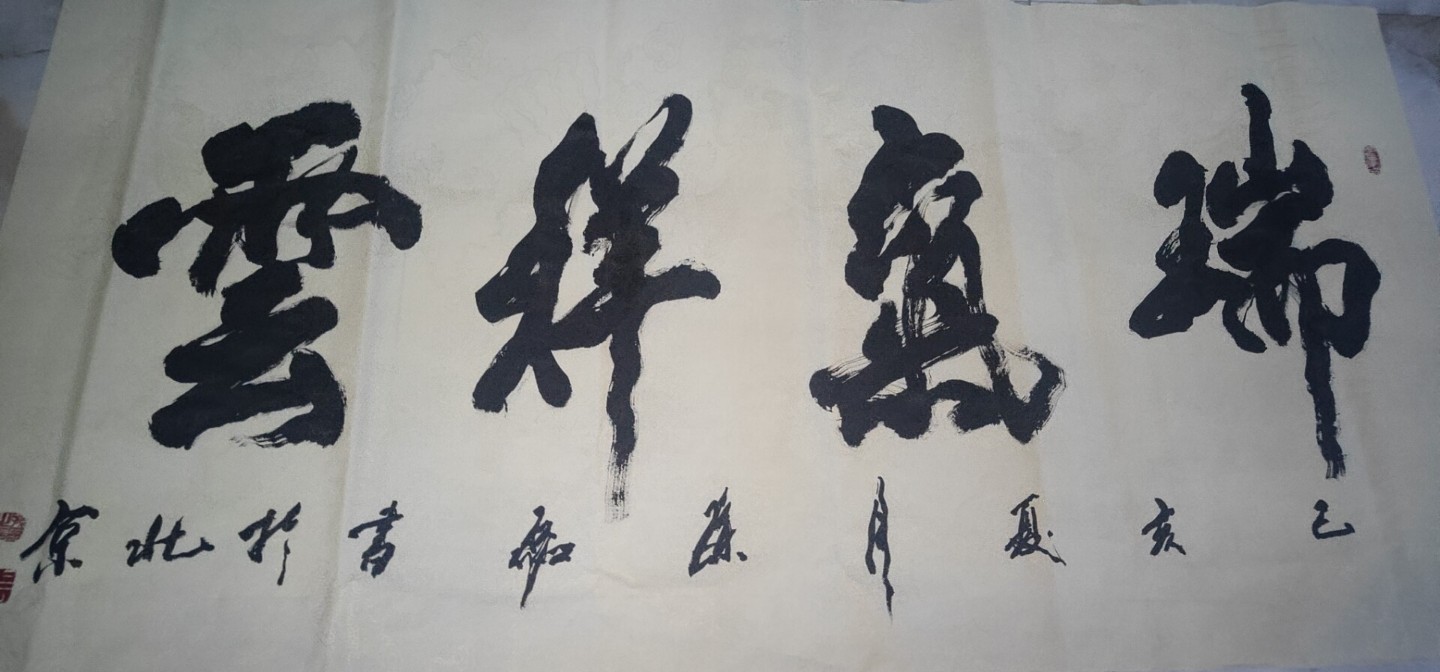 瑞氣祥雲
己亥夏月書於北京